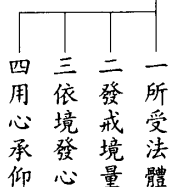 一所受法體
二發戒境量
三依境發心
四用心承仰